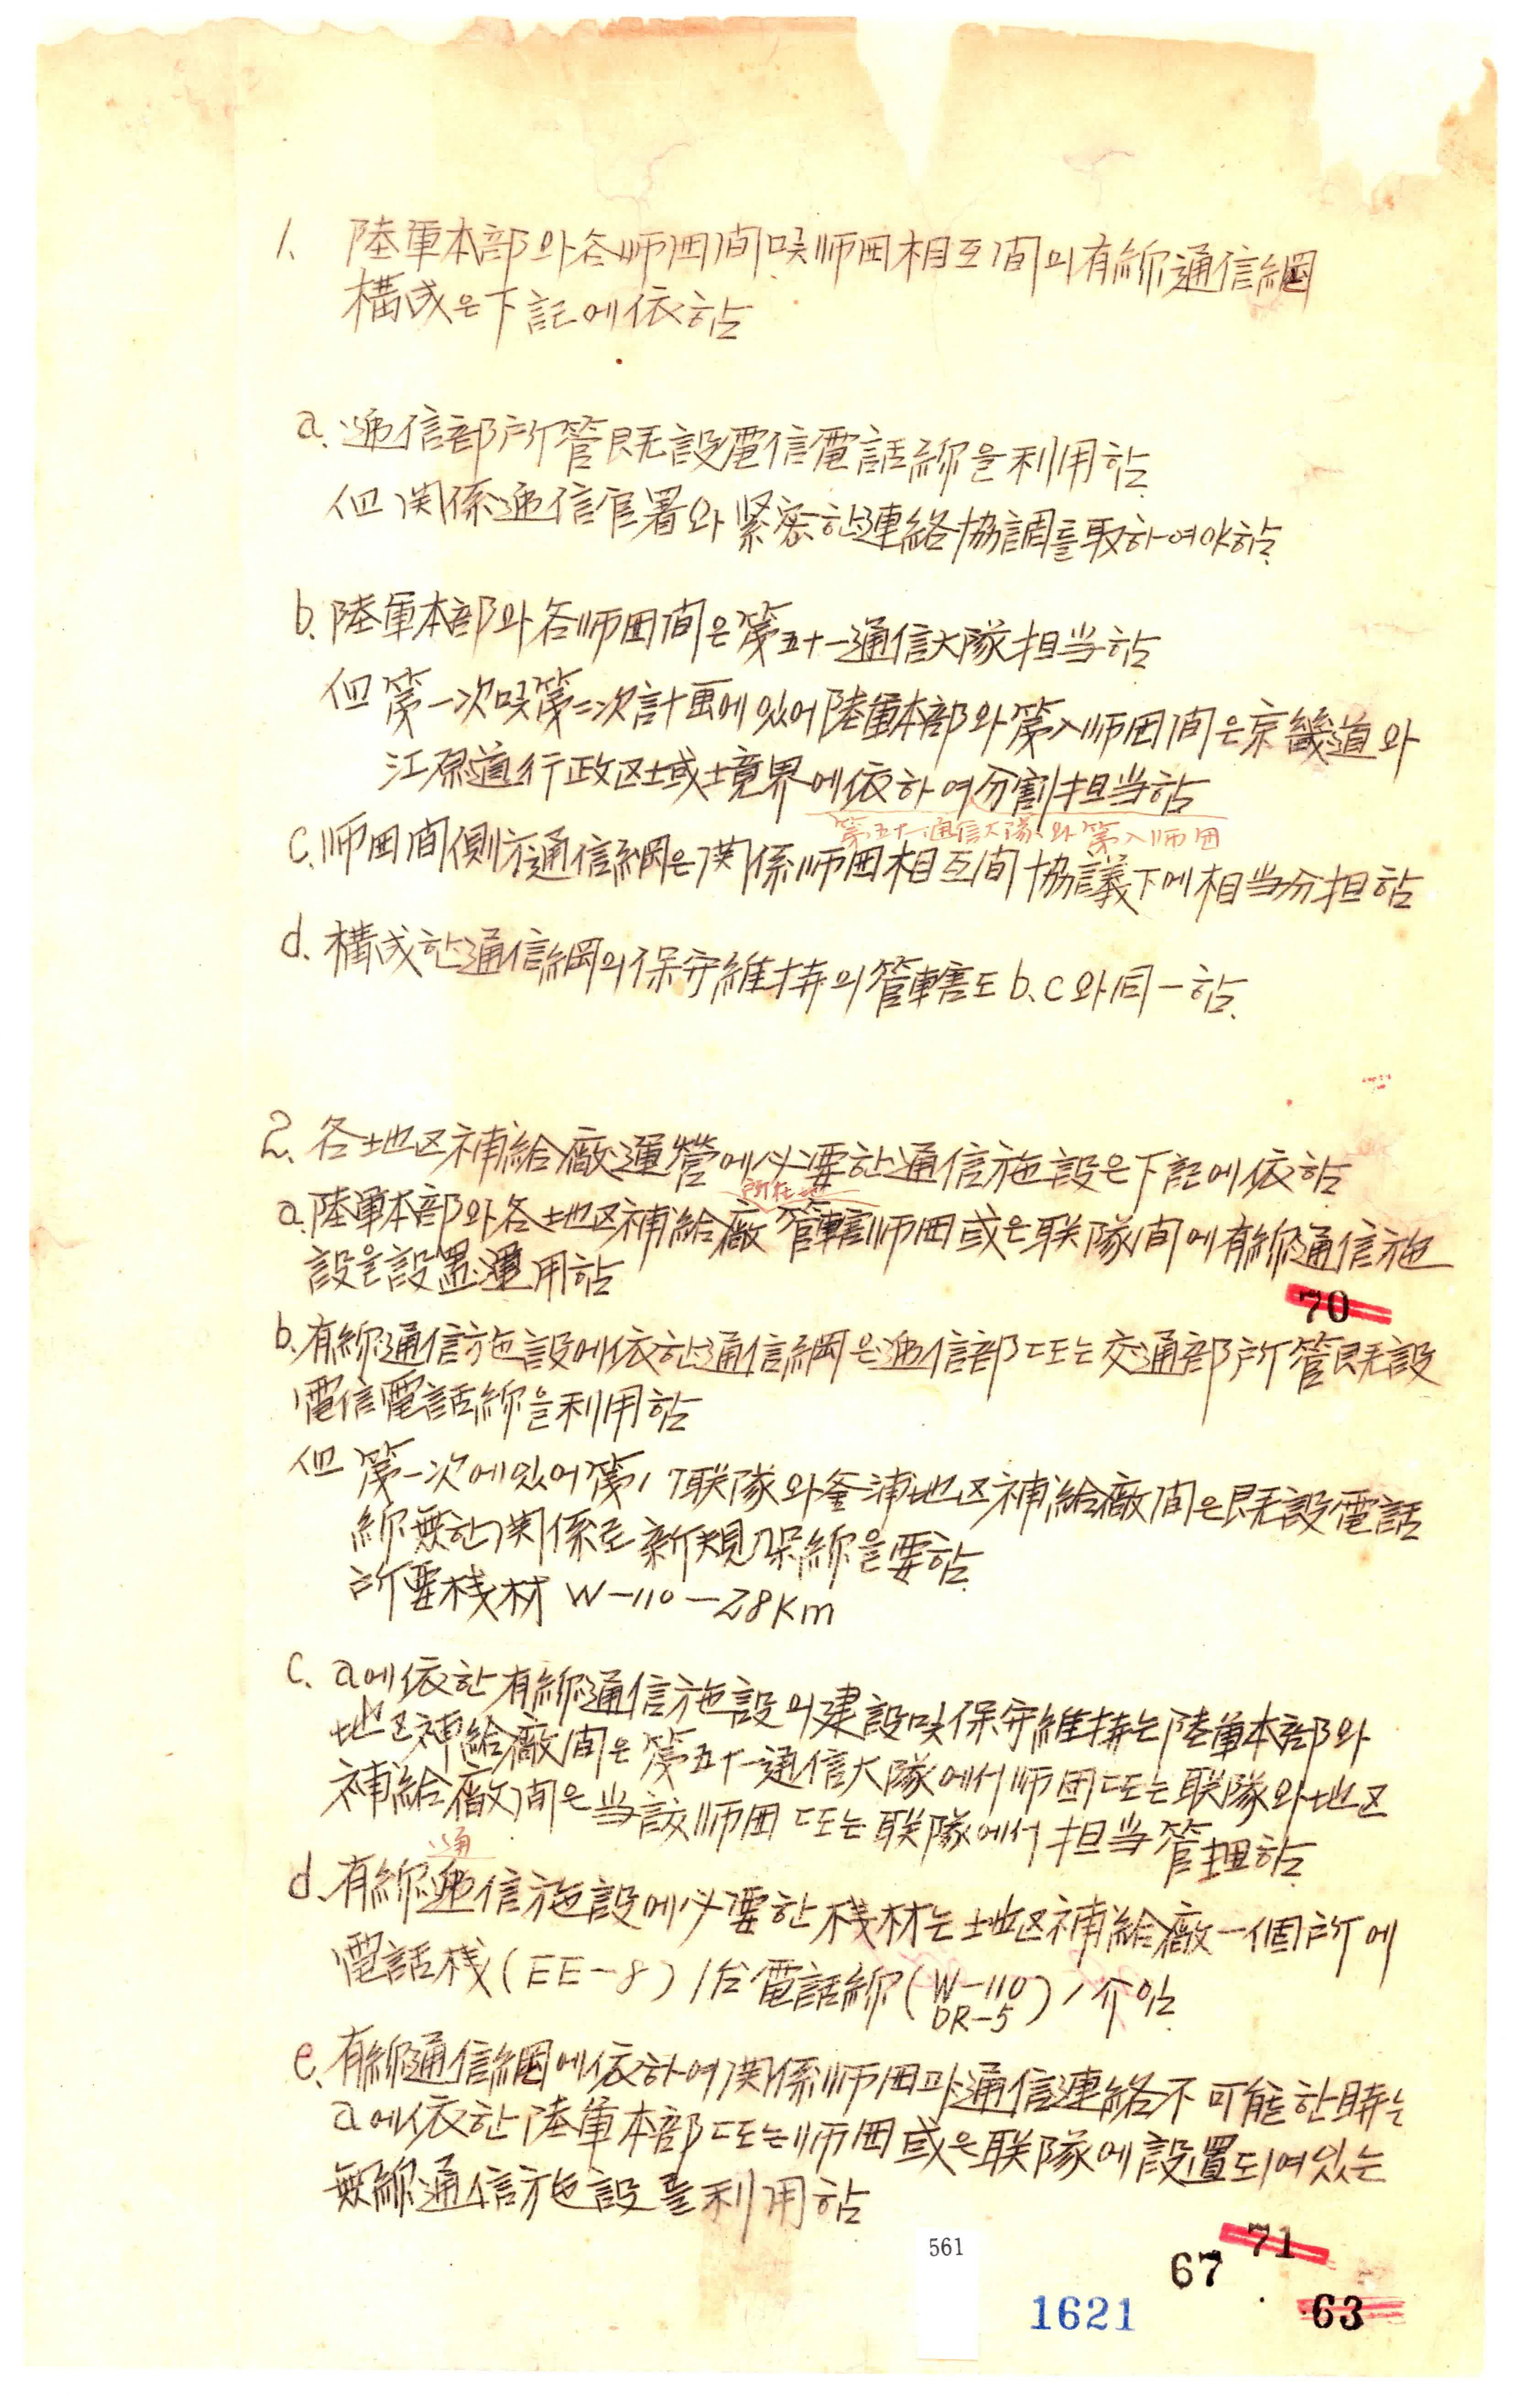 1. 陸軍本部와各师団间及师団相互间의有線通信網
構成은下記에依함
a. 逓信部所管既設電信電話線을利用함.
但関係逓信官署와緊密한連絡協調를取하여야함.
b. 陸軍本部와各师団间은第五十一通信大隊担当함
但第一次及第二次計画에있어陸軍本部와第八师団间은京畿道와
江原道行政区域境界에依하여分割担当함
第五十一通信大隊와第八师団
c. 师団间側方通信網은関係师団相互间協議下에相当分担함
d. 構成한通信網의保守維持의管轄도b、c와同一함.
2. 各地区補給廠運營에必要한通信施設은下記에依함
所在地
a. 陸軍本部와各地区補給廠管轄师団或은联隊间에有線通信施
設을設置運用함
70
b. 有線通信施設에依한通信網은逓信部또는交通部所管既設
電信電話線을利用함
但第一次에있어第17联隊와金浦地区補給廠间은既設電話
線無한関係로新規架線을要함.
所要棧材 W-110-28Km
c. a에依한有線通信施設의建設及保守維持는陸軍本部와
地区補給廠间은第五十一通信大隊에서师団또는联隊와地区
補給廠间은当該师団또는联隊에서担当管理함
通
d. 有線逓信施設에必要한棧材는地区補給廠一個所에
電話棧(EE-8)1台電話線(W-110
DR-5)1介임
e. 有線通信網에依하여関係师団과通信連絡不可能한時는
a에依한陸軍本部또는师団或은联隊에設置되여있는
無線通信施設를利用함
561
67 71
1621 63